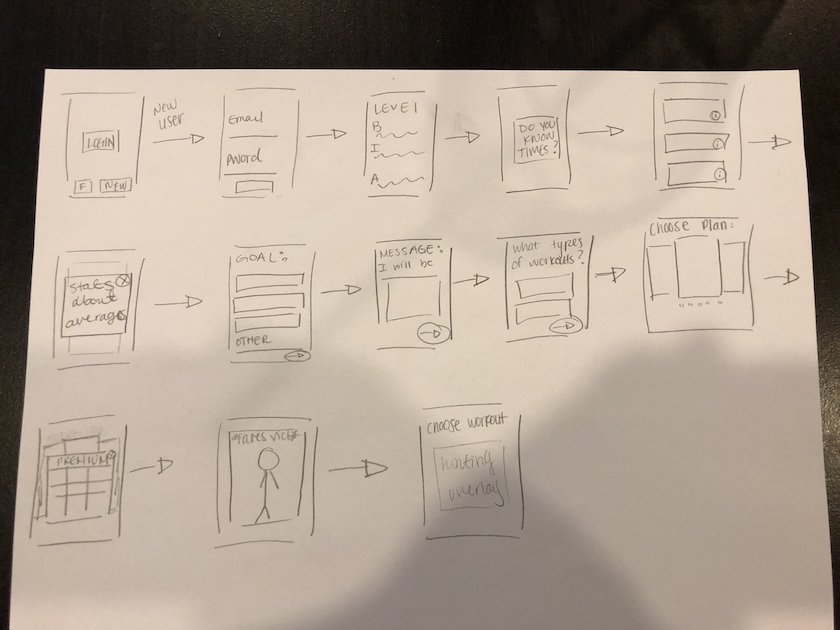 LOGIN
F NEW
NEW
USER
Email
PWord
LEVEL
B
I
A
DO YOU
KNOW
TIMES?
i
i
i
Stats X
about
averages
GOAL:
OTHER
MESSAGE:
I will be
What types
of workouts?
Choose Plan:
PREMIUM
choose workout
hinting
overlay